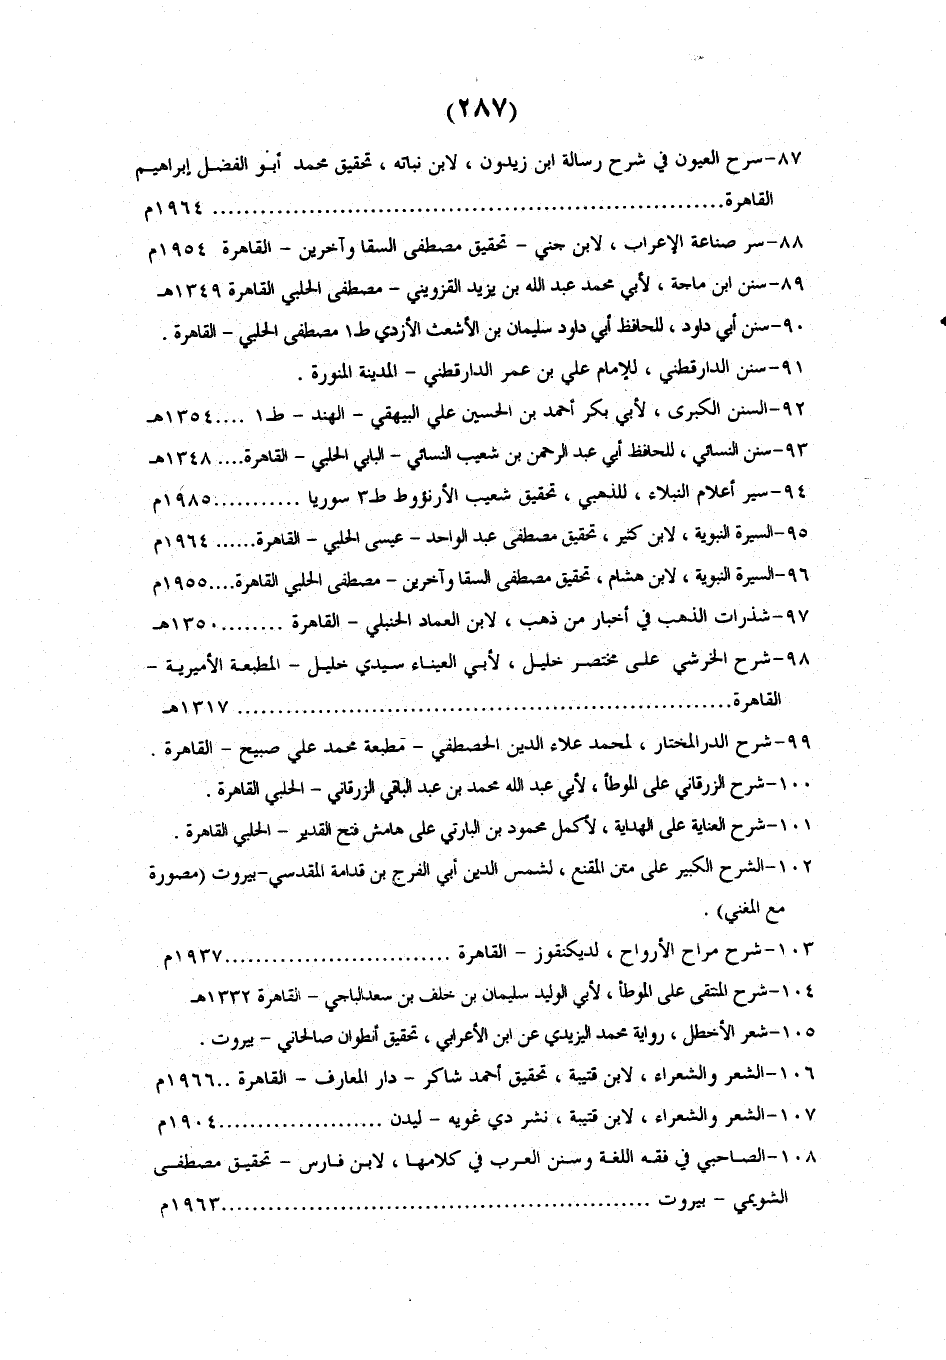 (٢٨٧)
٨٧-سرح العيون في شرح رسالة ابن زيدون ، لابن نباته ، تحقيق محمد أبو الفضل إبراهيم
القاهرة................................................................. ١٩٦٤م
٨٨-سر صناعة الإعراب ، لابن جني - تحقيق مصطفى السقا وآخرين - القاهرة ١٩٥٤م
٨٩-سنن ابن ماجة ، لأبي محمد عبد الله بن يزيد القزويني - مصطفى الحلبي القاهرة ١٣٤٩هـ
٩٠-سنن أبي داود ، للحافظ أبي داود سليمان بن الأشعث الأزدي ط١ مصطفى الحلبي - القاهرة .
٩١-سنن الدارقطني ، للإمام علي بن عمر الدارقطني - المدينة المنورة .
٩٢-السنن الكبرى ، لأبي بكر أحمد بن الحسين علي البيهقي - الهند - ط١ ....١٣٥٤هـ
٩٣-سنن النسائي ، للحافظ أبي عبد الرحمن بن شعيب النسائي - البابي الحلبي - القاهرة.... ١٣٤٨هـ
٩٤-سير أعلام النبلاء ، للذهبي ، تحقيق شعيب الأرنؤوط ط٣ سوريا ...........١٩٨٥م
٩٥-السيرة النبوية ، لابن كثير ، تحقيق مصطفى عبد الواحد - عيسى الحلبي - القاهرة...... ١٩٦٤م
٩٦-السيرة النبوية ، لابن هشام ، تحقيق مصطفى السقا وآخرين - مصطفى الحلبي القاهرة....١٩٥٥م
٩٧-شذرات الذهب في أخبار من ذهب ، لابن العماد الحنبلي - القاهرة ........١٣٥٠هـ
٩٨-شرح الخرشي على مختصر خليل ، لأبي العيناء سيدي خليل - المطبعة الأميرية -
القاهرة............................................................... ١٣١٧هـ
٩٩-شرح الدرالمختار ، لمحمد علاء الدين الحصطفي - مطبعة محمد علي صبيح - القاهرة .
١٠٠-شرح الزرقاني على الموطأ ، لأبي عبد الله محمد بن عبد الباقي الزرقاني - الحلبي القاهرة .
١٠١-شرح العناية على الهداية ، لأكمل محمود بن البارتي على هامش فتح القدير - الحلبي القاهرة .
١٠٢-الشرح الكبير على متن المقنع ، لشمس الدين أبي الفرج بن قدامة المقدسي-بيروت (مصورة
مع المغني) .
١٠٣-شرح مراح الأرواح ، لديكنقوز - القاهرة .............................١٩٣٧م
١٠٤-شرح المنتقى على الموطأ ، لأبي الوليد سليمان بن خلف بن سعدالباجي - القاهرة ١٣٣٢هـ
١٠٥-شعر الأخطل ، رواية محمد اليزيدي عن ابن الأعرابي ، تحقيق أنطوان صالحاني - بيروت .
١٠٦-الشعر والشعراء ، لابن قتيبة ، تحقيق أحمد شاكر - دار المعارف - القاهرة ..١٩٦٦م
١٠٧-الشعر والشعراء ، لابن قتيبة ، نشر دي غويه - ليدن .....................١٩٠٤م
١٠٨-الصاحبي في فقه اللغة وسنن العرب في كلامها ، لابن فارس - تحقيق مصطفى
الشويمي - بيروت ......................................................١٩٦٣م